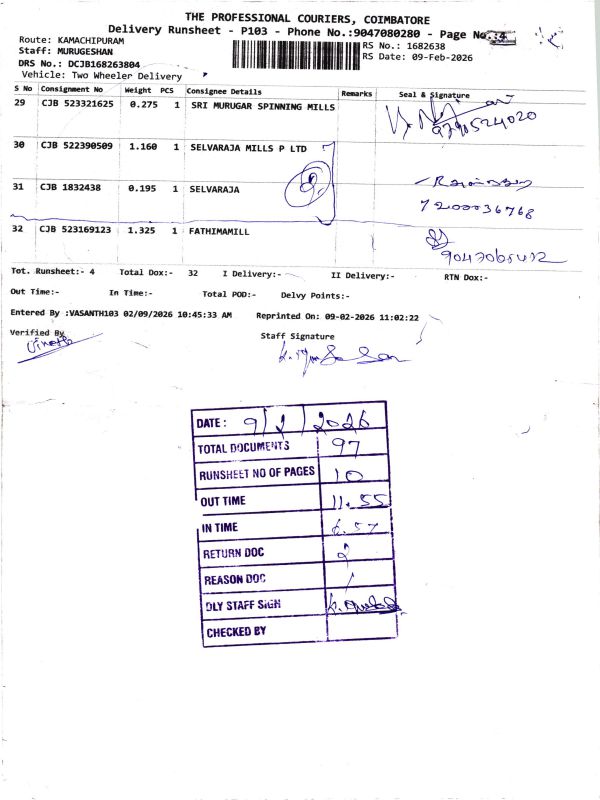 THE PROFESSIONAL COURIERS, COIMBATORE
Delivery Runsheet - P103 - Phone No.:9047080280 - Page No.:4
Route: KAMACHIPURAM
Staff: MURUGESHAN
RS No.: 1682638
DRS No.: DCJB168263804
RS Date: 09-Feb-2026
Vehicle: Two Wheeler Delivery
S No Consignment No Weight PCS Consignee Details Remarks Seal & Signature
29 CJB 523321625 0.275 1 SRI MURUGAR SPINNING MILLS
9790524020
30 CJB 522390509 1.160 1 SELVARAJA MILLS P LTD
31 CJB 1832438 0.195 1 SELVARAJA
7200036768
32 CJB 523169123 1.325 1 FATHIMAMILL
Tot. Runsheet:- 4 Total Dox:- 32 I Delivery:- II Delivery:- RTN Dox:-
Out Time:- In Time:- Total POD:- Delvy Points:-
Entered By :VASANTH103 02/09/2026 10:45:33 AM Reprinted On: 09-02-2026 11:02:22
Verified By
Staff Signature
DATE : 9/2/2026
TOTAL DOCUMENTS 97
RUNSHEET NO OF PAGES 10
OUT TIME 11.55
IN TIME 6.57
RETURN DOC
REASON DOC
DLY STAFF SIGN
CHECKED BY